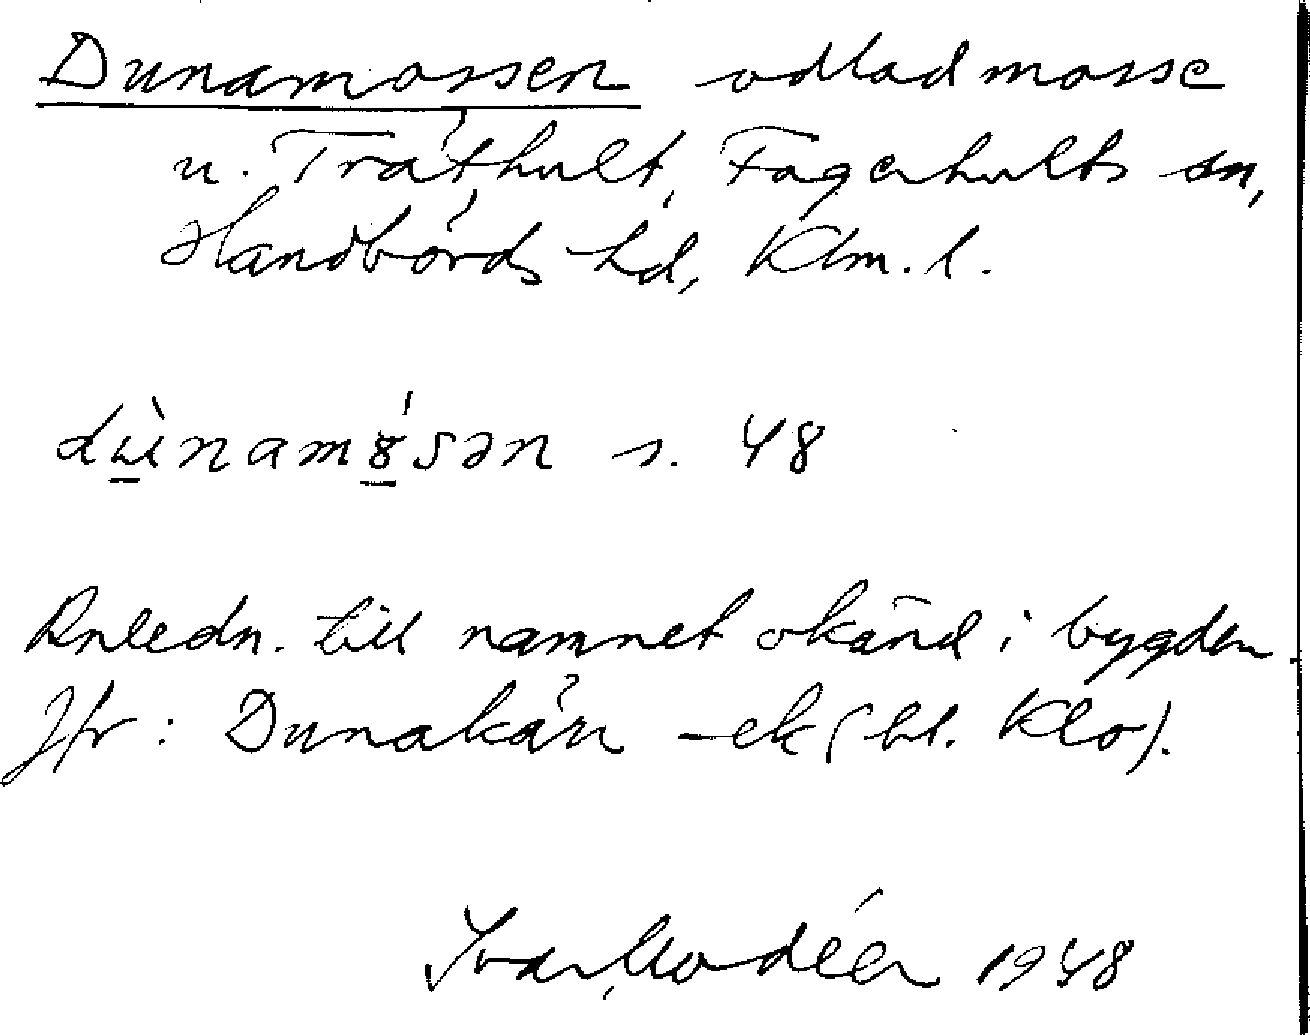 Dunamossen odlad mosse
u. Tråthult, Fagerhults sn,
Handbörds hd, Klm. l.
dùnamósən s. 48
Anledn. till namnet okänd i bygden.
Jfr: Dunakärr -ek (bl. Klo).
Ivar Modéer 1948